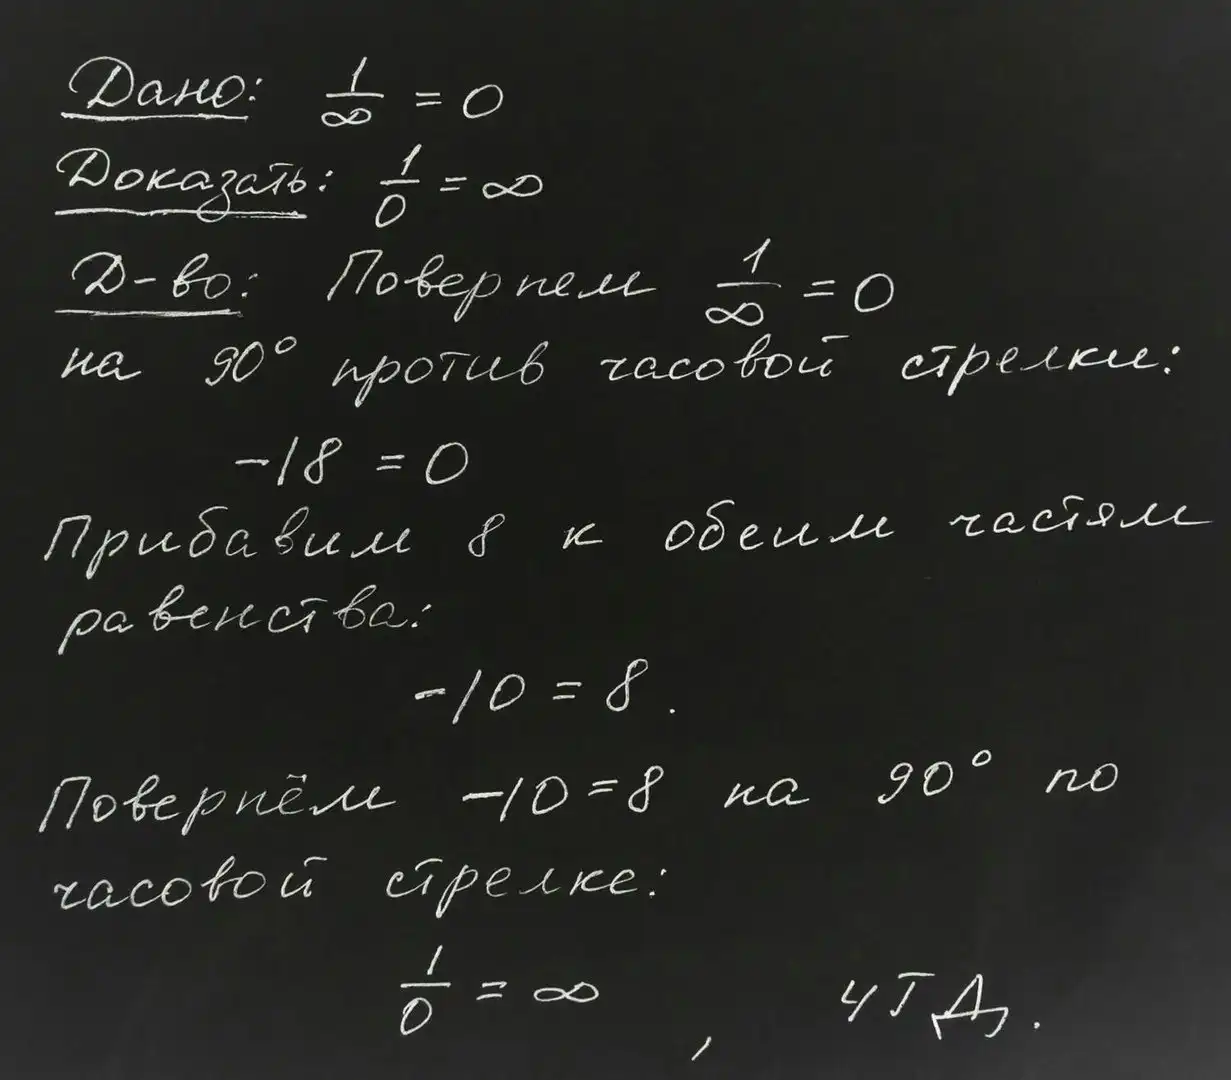 Дано: 1/∞ = 0
Доказать: 1/0 = ∞
Д-во: Повернем 1/∞ = 0
на 90° против часовой стрелки:
-18 = 0
Прибавим 8 к обеим частям
равенства:
-10 = 8.
Повернём -10 = 8 на 90° по
часовой стрелке:
1/0 = ∞ , ЧТД.